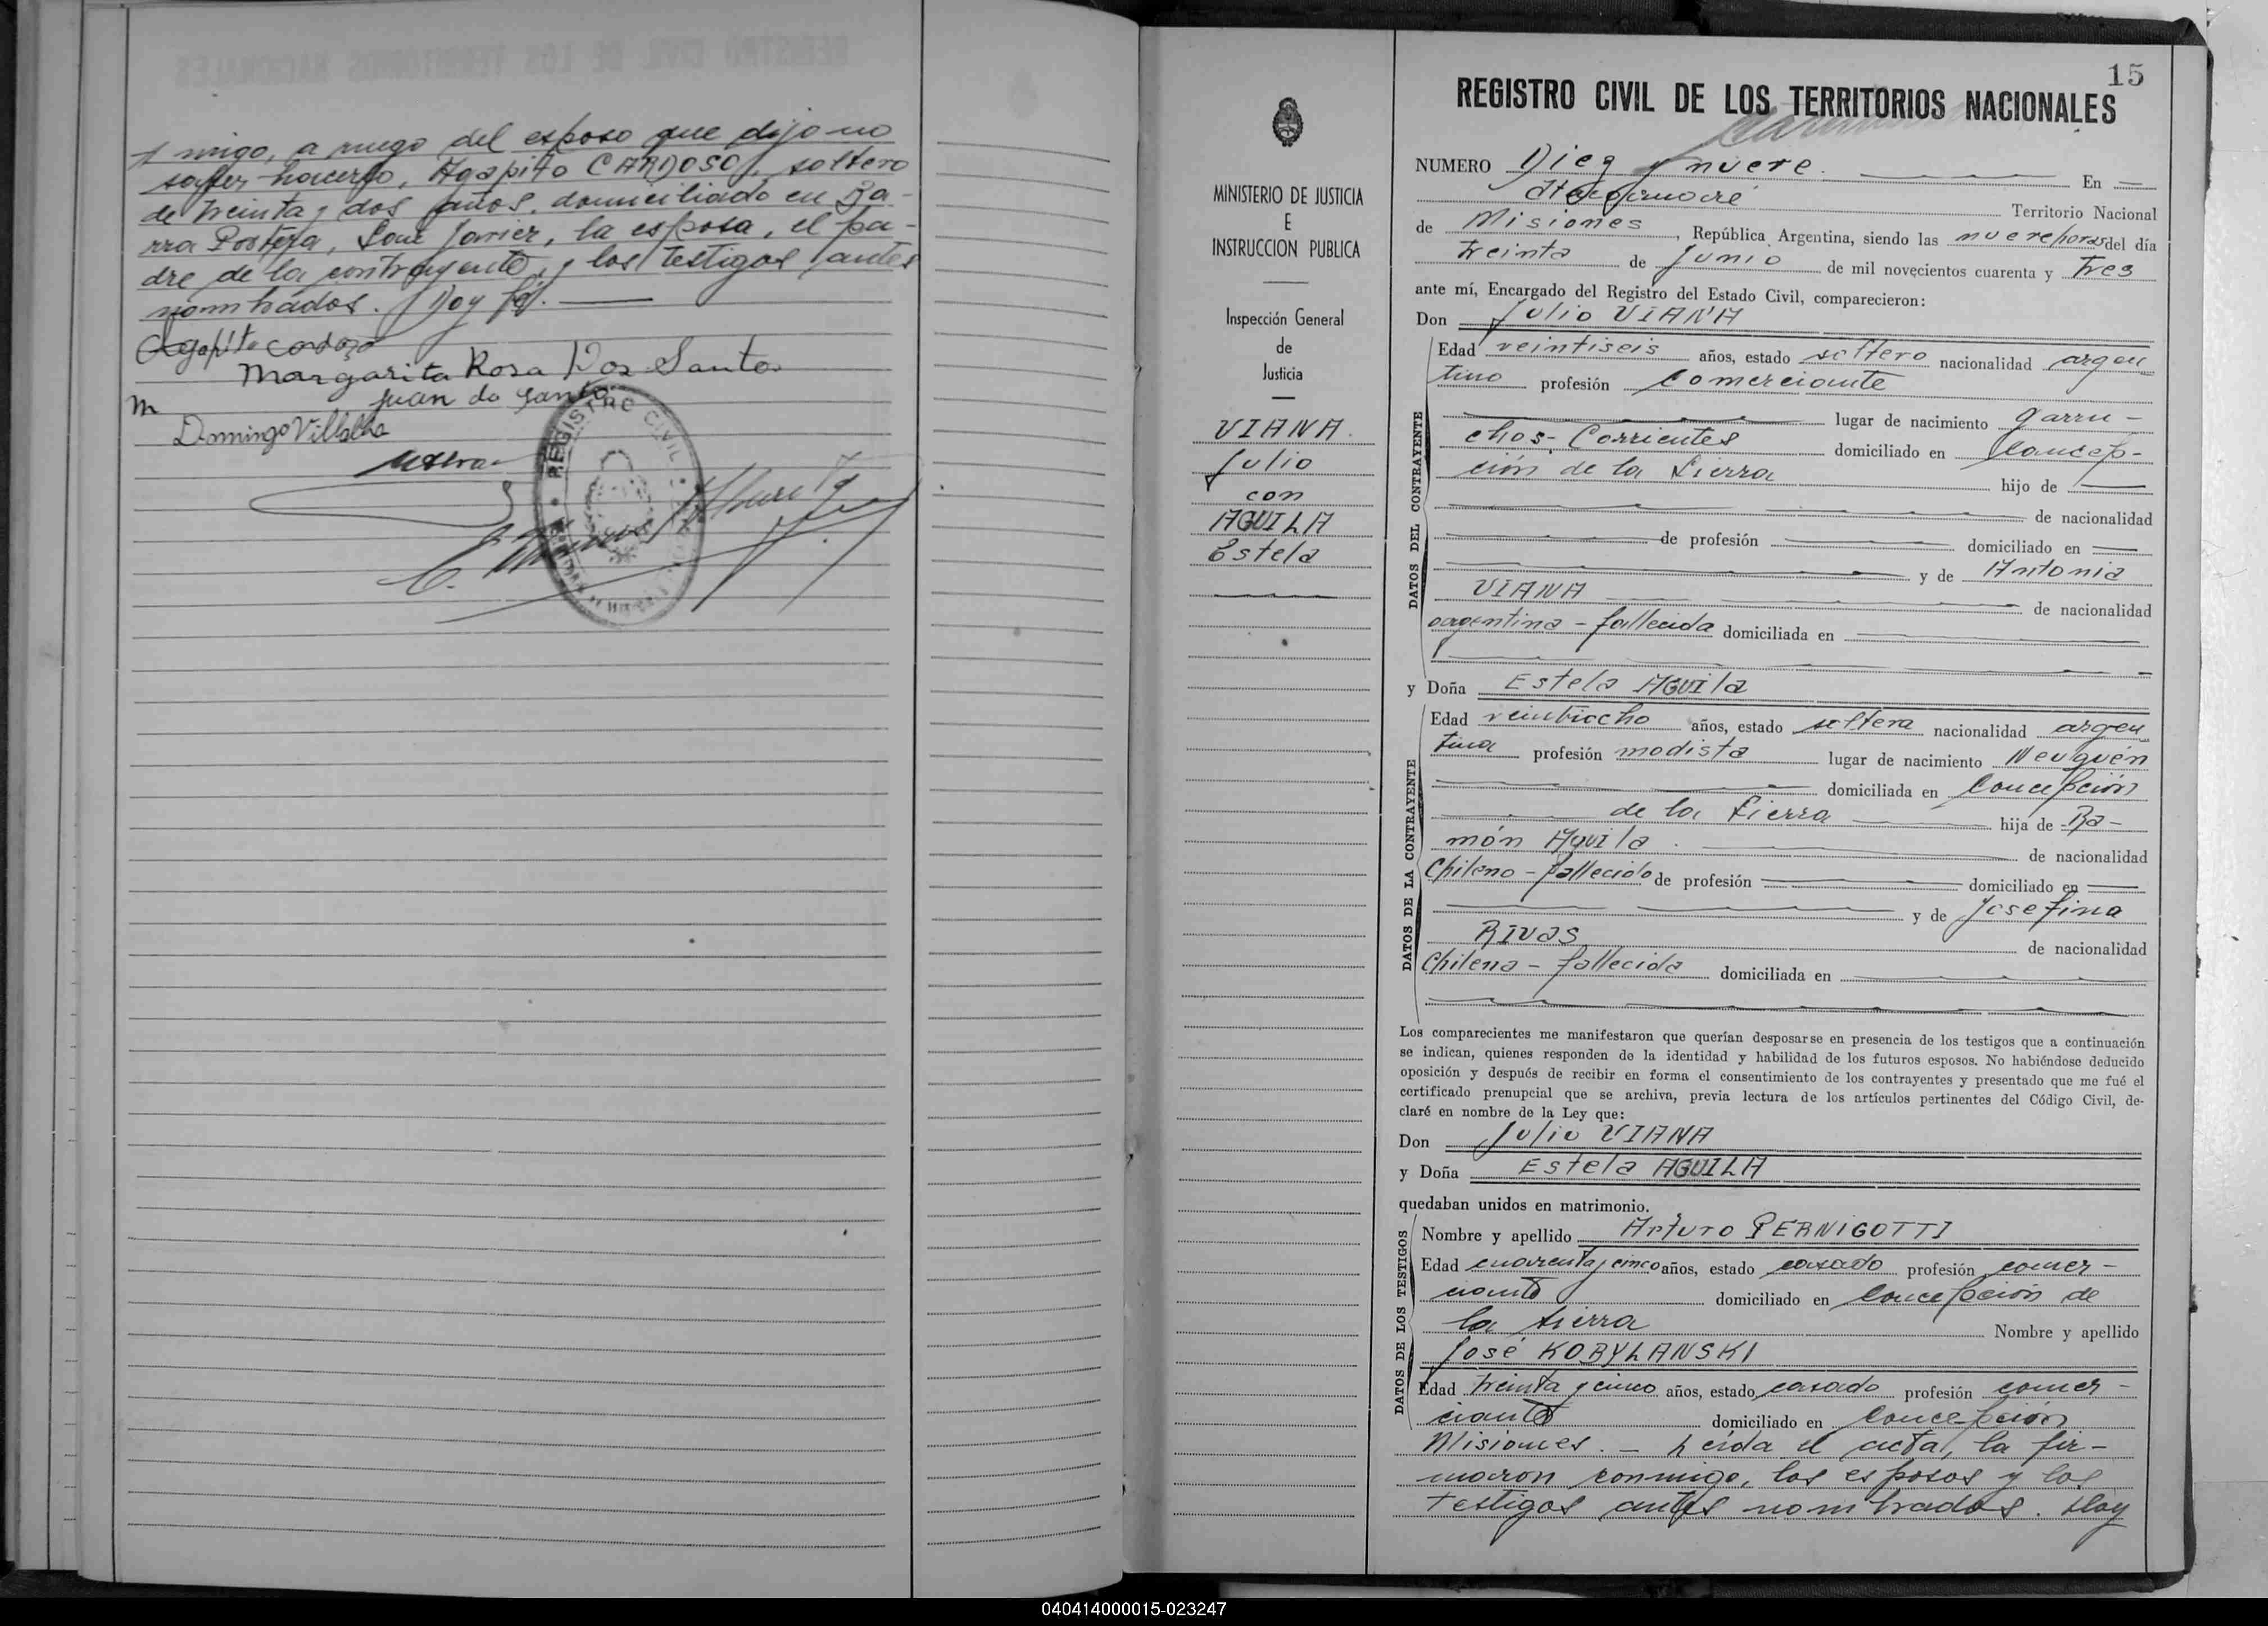 migo, a ruego del esposo que dijo no
saber hacerlo, Agapito CARDOSO, soltero
de treinta y dos años, domiciliado en Ba-
rra Postera, San Javier, la esposa, el pa-
dre de la contrayente, y los testigos antes
nombrados. Doy fé.
Agapito Cardozo
Margarita Rosa Dos Santos
Juan do Santo
Domingo Villalba
REGISTRO CIVIL
MINISTERIO DE JUSTICIA
E
INSTRUCCION PUBLICA
Inspección General
de
Justicia
VIANA
Julio
con
AGUILA
Estela
15
REGISTRO CIVIL DE LOS TERRITORIOS NACIONALES
NUMERO Diez y nueve. En
Territorio Nacional
de Misiones, República Argentina, siendo las nueve horas del día
treinta de Junio de mil novecientos cuarenta y tres
ante mí, Encargado del Registro del Estado Civil, comparecieron:
Don Julio VIANA
DATOS DEL CONTRAYENTE
Edad veintiseis años, estado soltero nacionalidad argen
tino profesión Comerciante
lugar de nacimiento Garru-
chos- Corrientes domiciliado en Concep-
ción de la Sierra hijo de
de nacionalidad
de profesión domiciliado en
y de Antonia
VIANA de nacionalidad
argentina - fallecida domiciliada en
y Doña Estela AGUILA
DATOS DE LA CONTRAYENTE
Edad veintiocho años, estado soltera nacionalidad argen
tina profesión modista lugar de nacimiento Neuquén
domiciliada en Concepción
de la Sierra hija de Ra-
món Aguila de nacionalidad
Chileno - fallecido de profesión domiciliado en
y de Josefina
RIVAS de nacionalidad
Chilena - fallecida domiciliada en
Los comparecientes me manifestaron que querían desposarse en presencia de los testigos que a continuación
se indican, quienes responden de la identidad y habilidad de los futuros esposos. No habiéndose deducido
oposición y después de recibir en forma el consentimiento de los contrayentes y presentado que me fué el
certificado prenupcial que se archiva, previa lectura de los artículos pertinentes del Código Civil, de-
claré en nombre de la Ley que:
Don Julio VIANA
y Doña Estela AGUILA
quedaban unidos en matrimonio.
DATOS DE LOS TESTIGOS
Nombre y apellido Arturo PERNIGOTTI
Edad cuarenta y cinco años, estado casado profesión comer-
ciante domiciliado en Concepción de
la Sierra Nombre y apellido
José KOBYLANSKI
Edad treinta y cinco años, estado casado profesión comer-
ciante domiciliado en Concepción
Misiones. - Leída el acta, la fir-
maron conmigo, los esposos y los
testigos antes nombrados. Doy
040414000015-023247